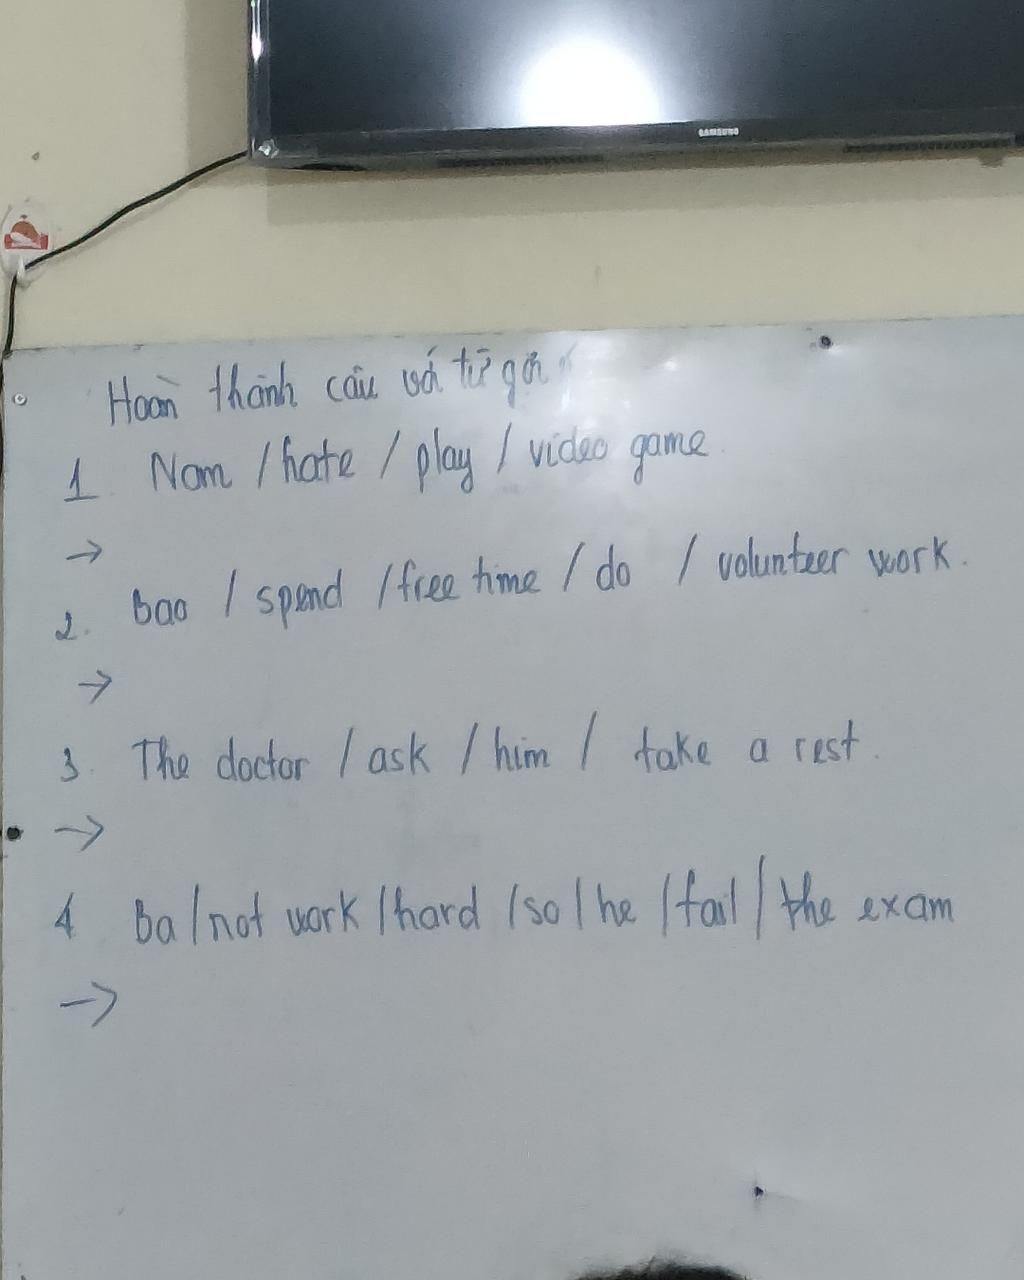 SAMSUNG
Hoàn thành câu với từ gợi ý
1. Nam / hate / play / video game.
→
2. Bao / spend / free time / do / volunteer work.
→
3. The doctor / ask / him / take a rest.
→
4 Ba / not work / hard / so / he / fail / the exam
→